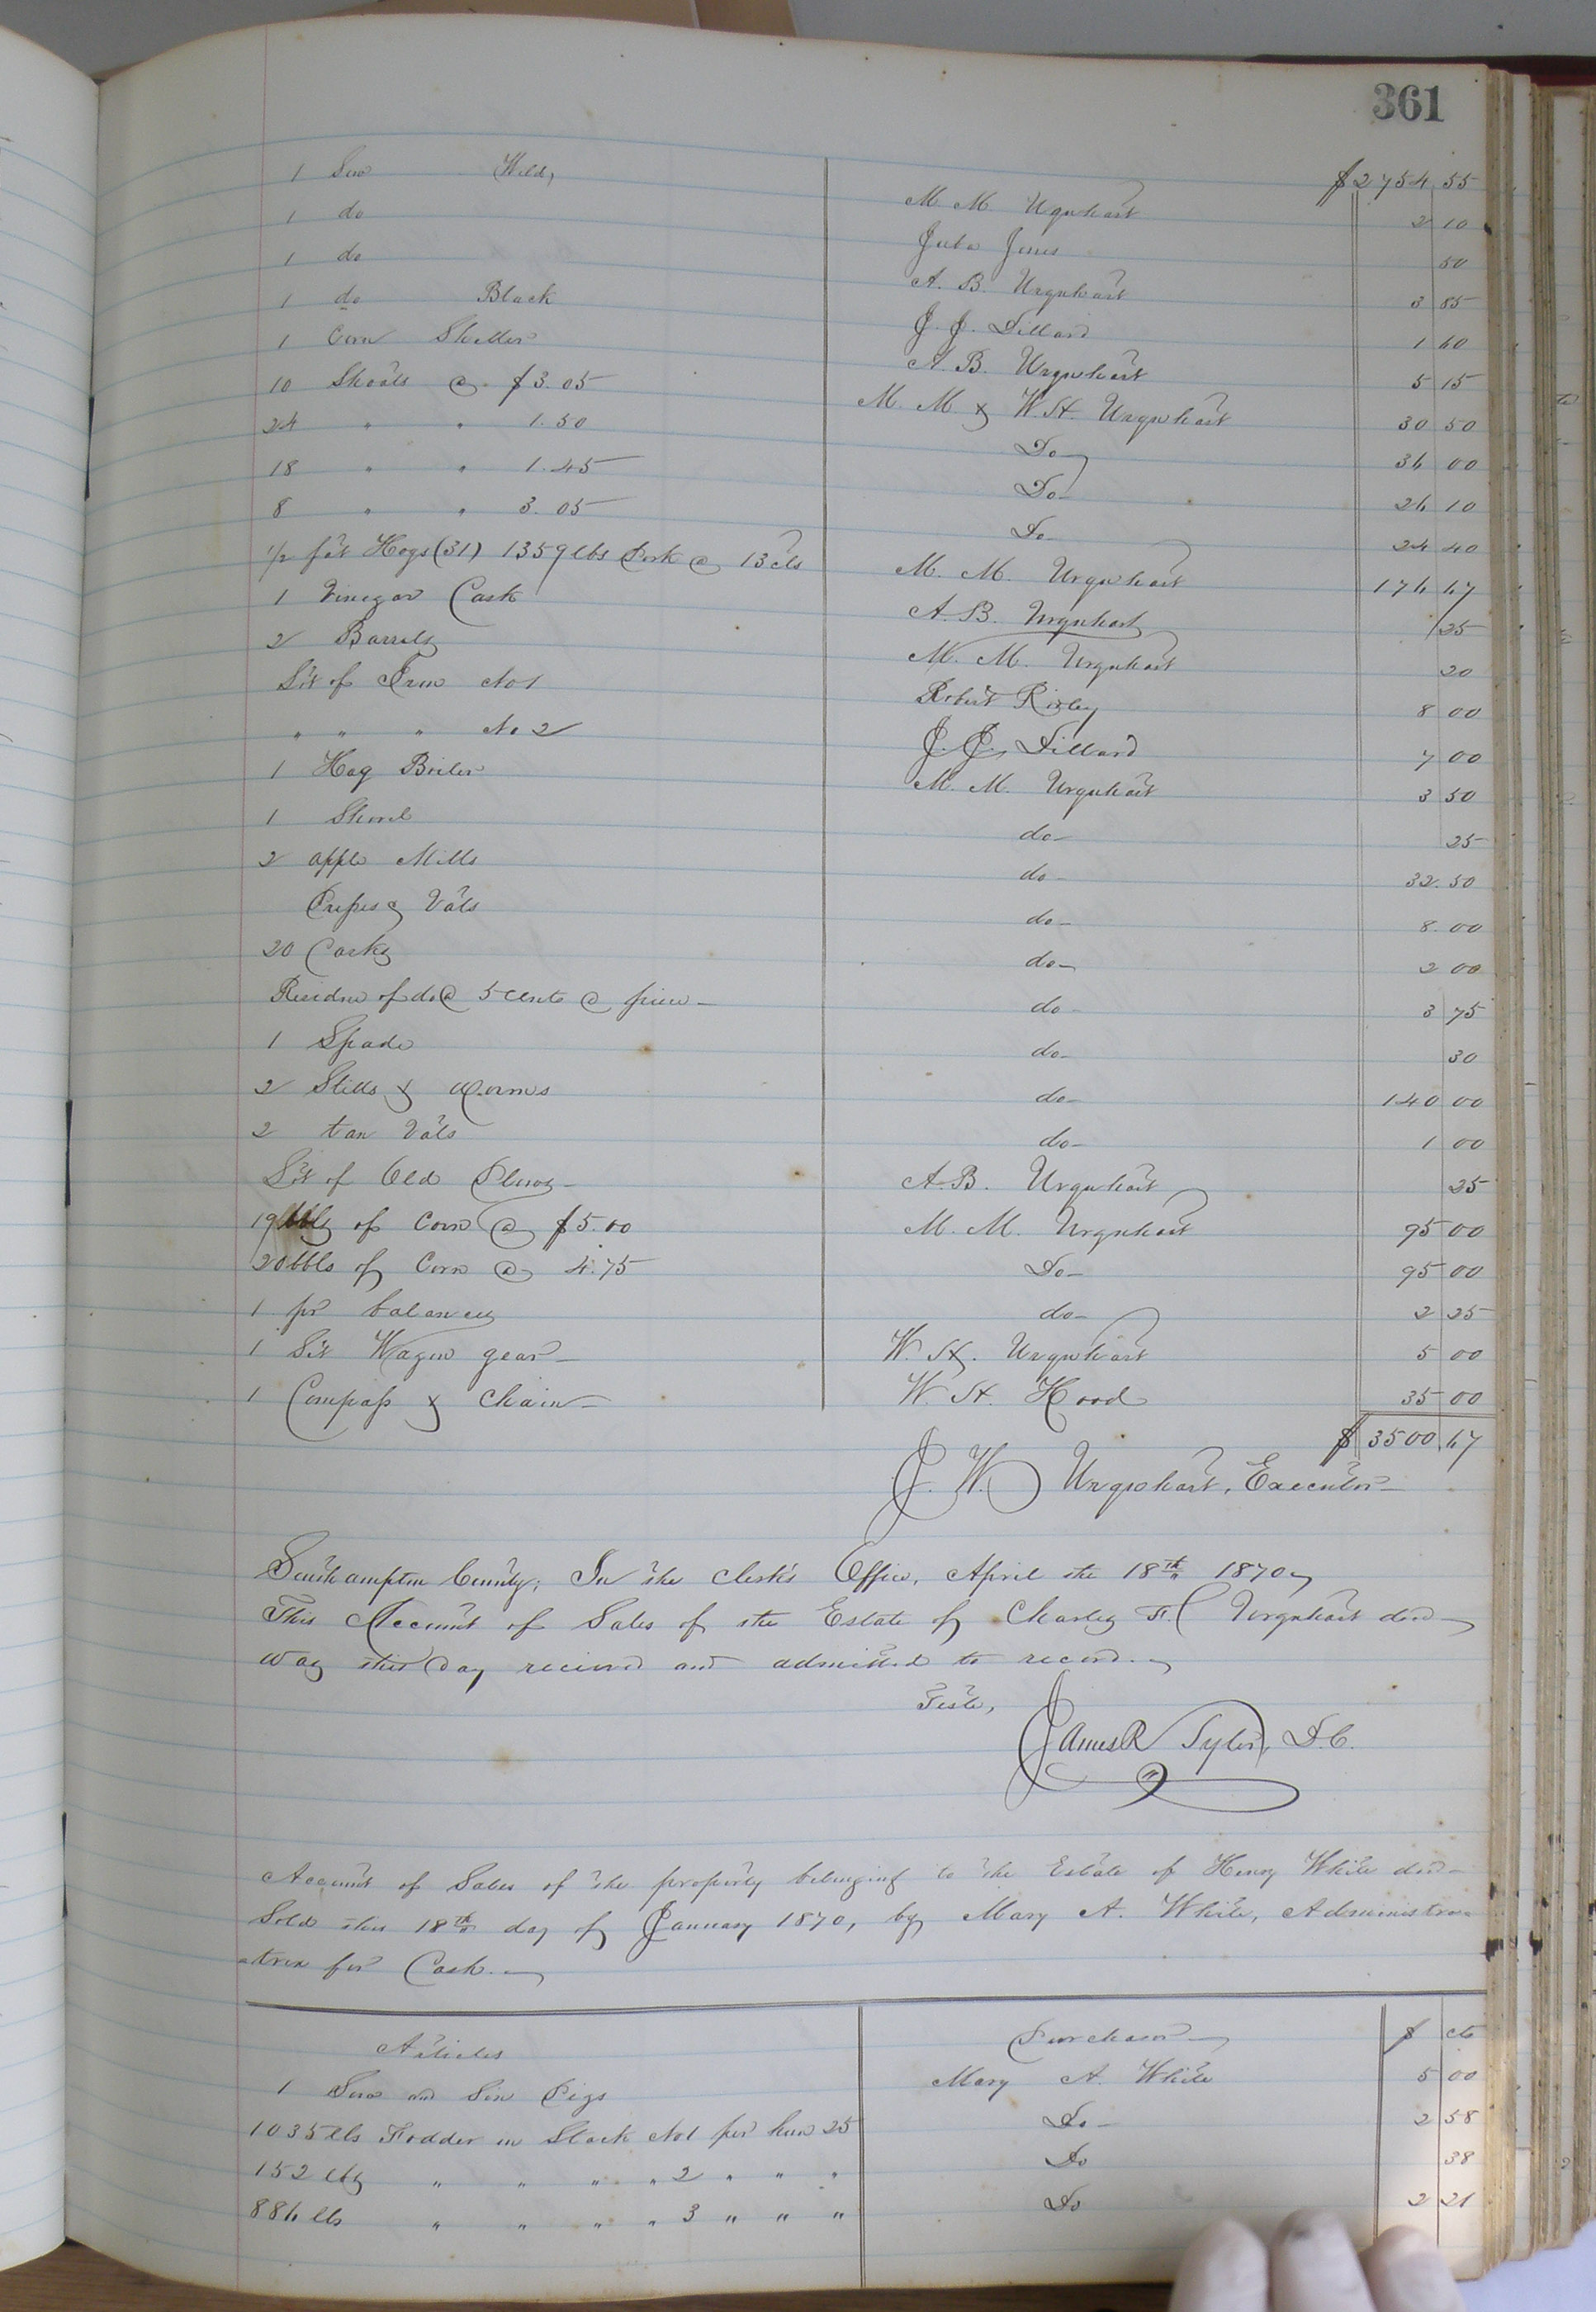 361
$2754.55
1 Sow Wild, M. M. Urquhart 2 10
1 do Juba Jones 50
1 do A. B. Urquhart 3 85
1 do Black J. J. Dillard 1 60
1 Corn Sheller A. B. Urquhart 5 15
10 Shoats @ $3.05 M. M. & W. H. Urquhart 30 50
24 " " 1.50 Do 36 00
18 " " 1.45 Do 26 10
8 " " 3.05 Do 24 40
1/2 fat Hogs (31) 1359 lbs Pork @ 13 cts M. M. Urquhart 176 67
1 Vinegar Cask A. B. Urquhart 25
2 Barrels M. M. Urquhart 20
Lot of Iron No 1 Robert Rixley 8 00
" " " No 2 J. J. Dillard 7 00
1 Hog Boiler M. M. Urquhart 3 50
1 Shovel do 25
2 apple Mills do 32.50
Presses & Vats do 8 00
20 Casks do 2 00
Residue of do @ 5 cents @ piece do 3 75
1 Spade do 30
2 Stills & Worms do 140 00
2 tan Vats do 1 00
Lot of Old Plows A. B. Urquhart 25
19 bbls of Corn @ $5.00 M. M. Urquhart 95 00
20 bbls of Corn @ 4.75 Do 95 00
1 pr balances do 2 25
1 Set Wagon gear W. H. Urquhart 5 00
1 Compass & Chain W. H. Hood 35 00
$3500.67
J. W. Urquhart, Executor
Southampton County; In the Clerk's Office, April the 18th 1870
This Account of Sales of the Estate of Charles F. Urquhart decd
was this day received and admitted to record.
Teste,
James R Tyler, D.C.
Account of Sales of the property belonging to the Estate of Henry White decd
Sold this 18th day of January 1870, by Mary A. White, Administra-
-trix for Cash.
Articles Purchaser $ cts
1 Sow and Six Pigs Mary A. White 5 00
1035 lbs Fodder in Stack No 1 per hun 25 Do 2 58
152 lbs " " " " 2 " " " Do 38
886 lbs " " " " 3 " " " Do 2 21